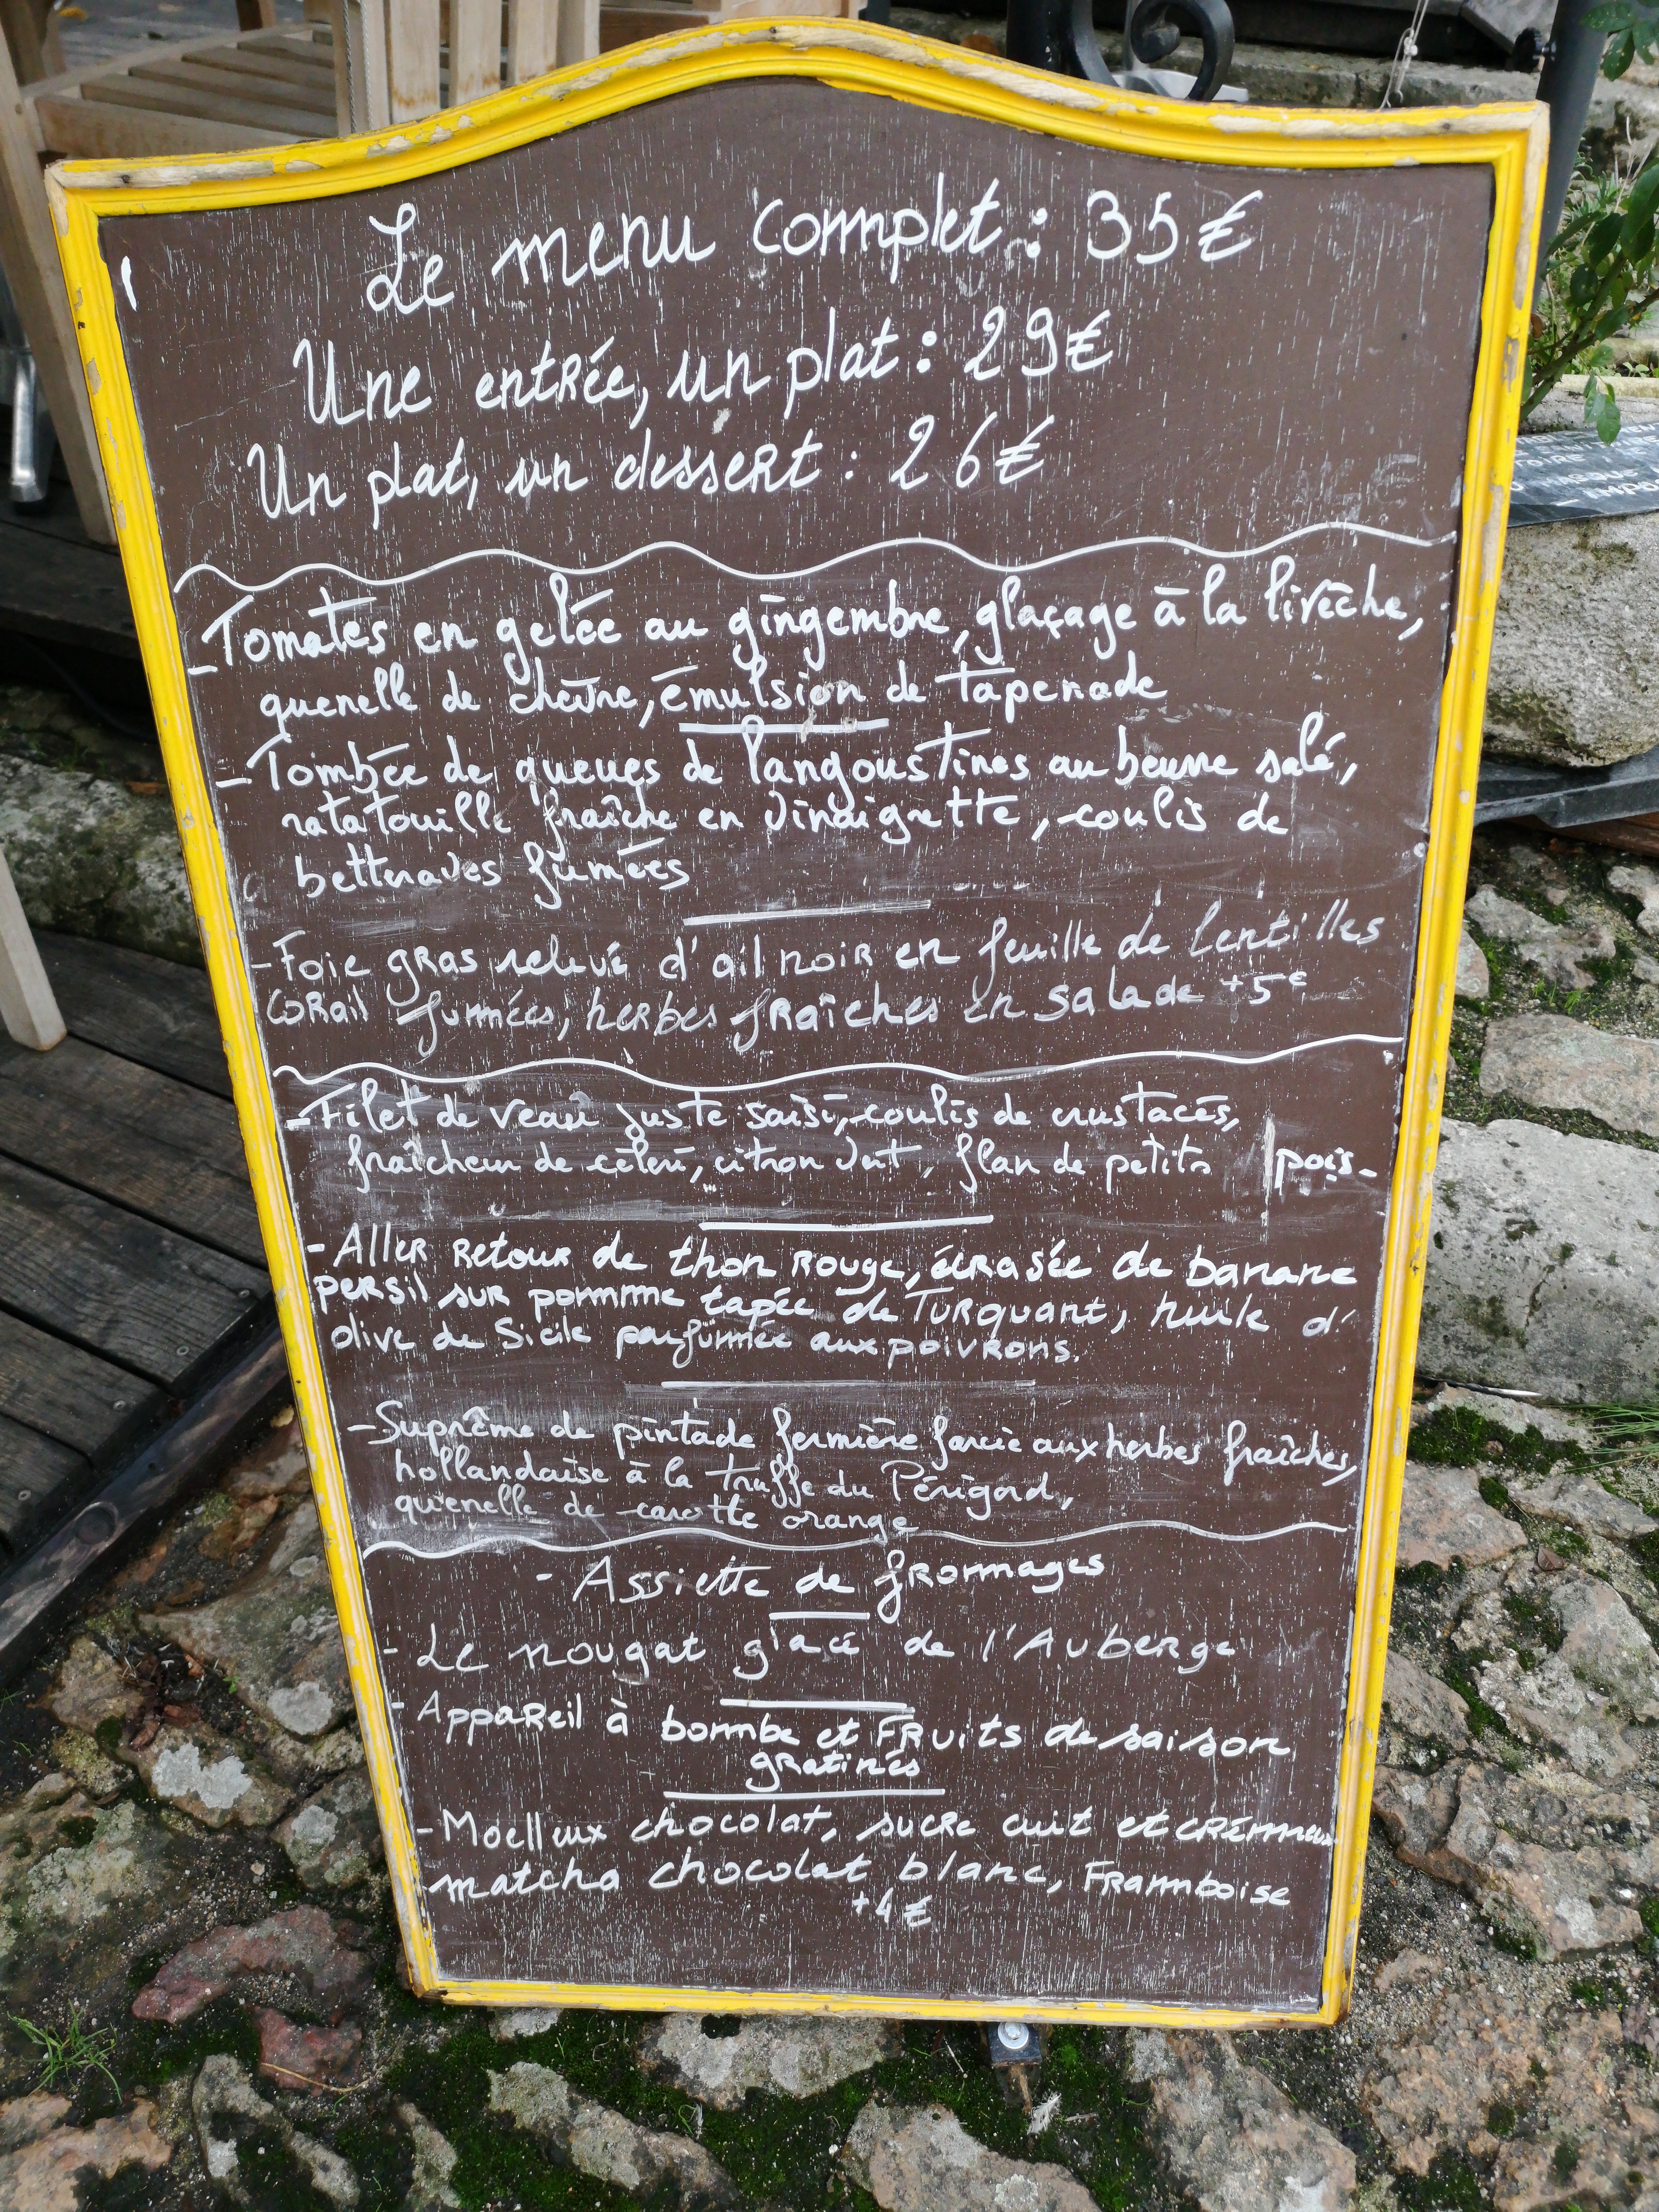 Le menu complet : 35€
Une entrée, un plat : 29€
Un plat, un dessert : 26€
-Tomates en gelée au gingembre, glaçage à la livèche,
quenelle de chèvre, émulsion de tapenade
-Tombée de queues de langoustines au beurre salé,
ratatouille fraîche en vinaigrette, coulis de
betteraves fumées
-Foie gras relevé d'ail noir en feuille de lentilles
corail fumées, herbes fraîches en salade +5€
-Filet de veau juste saisi, coulis de crustacés,
fraîcheur de céleri, citron vert, flan de petits pois-
-Aller retour de thon rouge, écrasée de banane
persil sur pomme tapée de Turquant, huile d'
olive de Sicile parfumée aux poivrons.
-Suprême de pintade fermière farcie aux herbes fraîches,
hollandaise à la truffe du Périgord,
quenelle de carotte orange
- Assiette de fromages
- Le nougat glacé de l'Auberge
- Appareil à bombe et Fruits de saison
gratinés
-Moelleux chocolat, sucre cuit et crémeux
matcha chocolat blanc, Framboise
+4€